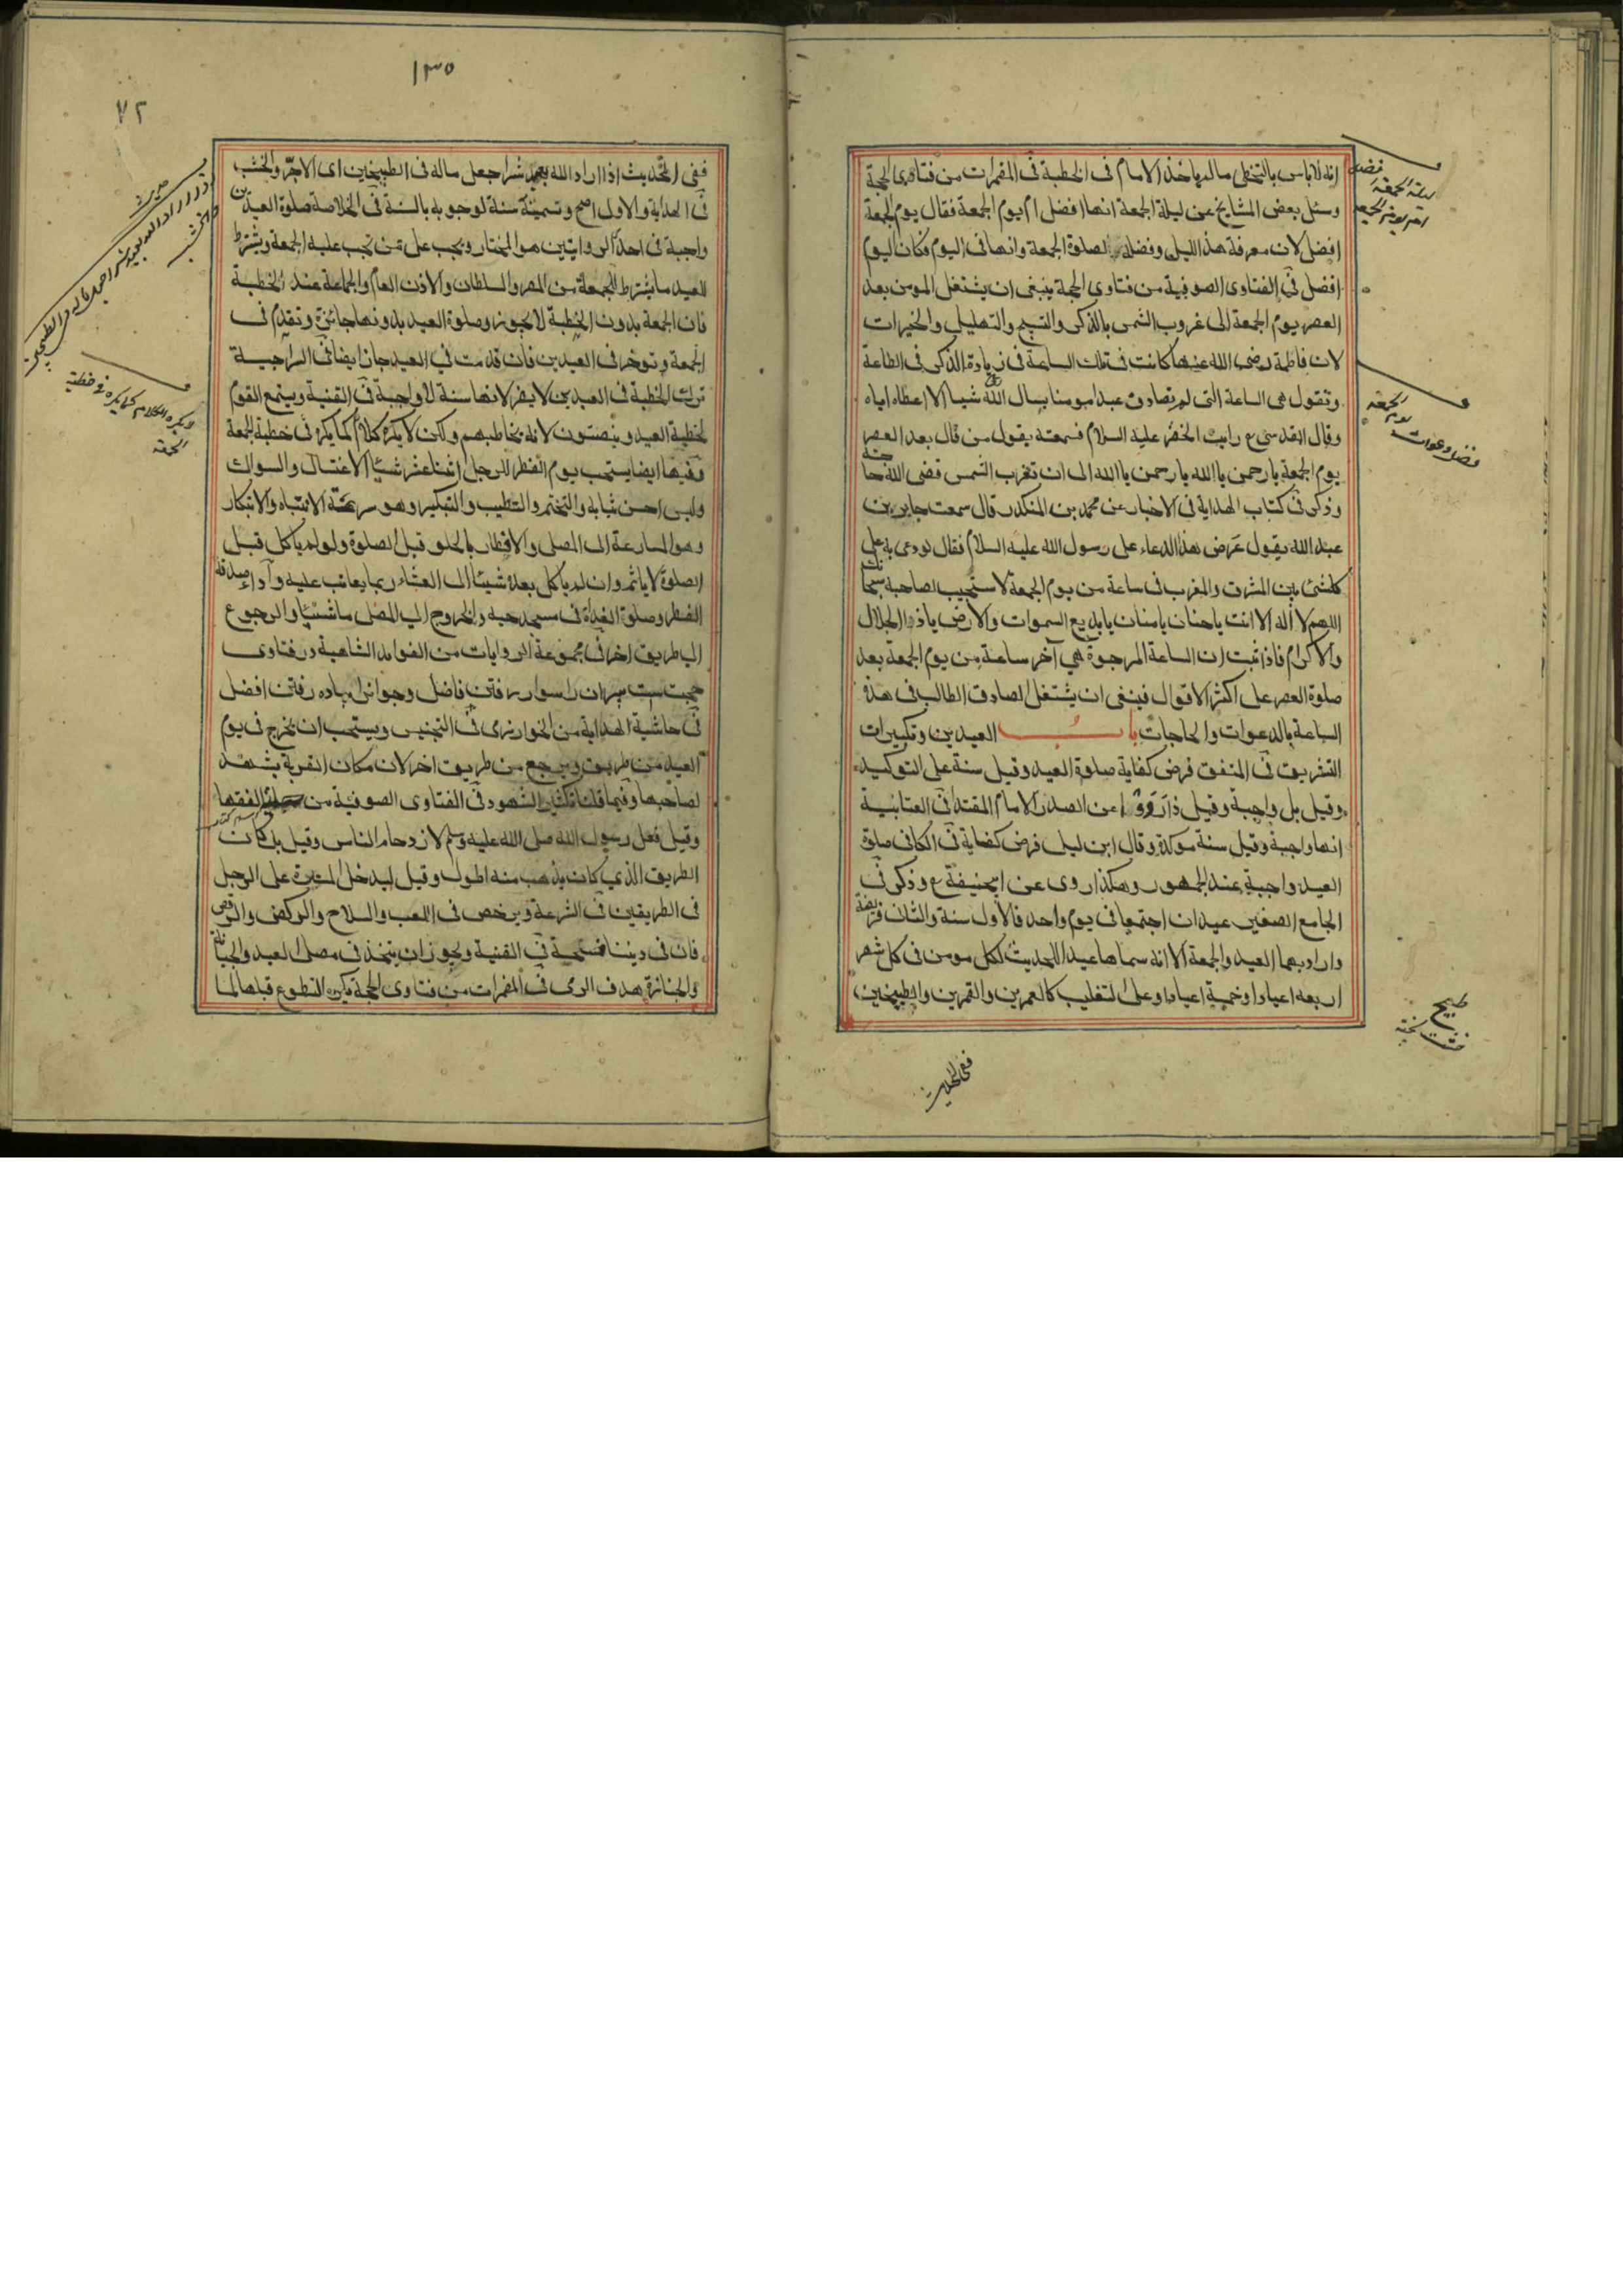 انه لاباس بالتخطى مالم ياخذ الامام فى الخطبة فى المضمرات من فتاوى الحجة
وسئل بعض المشايخ عن ليلة الجمعة انها افضل ام يوم الجمعة فقال يوم الجمعة
افضل لان معرفة هذا الليل وفضله لصلوة الجمعة وانها فى اليوم فكان اليوم
افضل فى الفتاوى الصوفية من فتاوى الحجة ينبغى ان يشتغل المومن بعد
العصر يوم الجمعة الى غروب الشمس بالذكر والتسبيح والتهليل والخيرات
لان فاطمة رضى الله عنها كانت فى تلك الساعة فى زيادة الذكر فى الطاعة
وتقول هى الساعة التى لم يصادف عبدا مومنا يسال الله شيا الا اعطاه اياه
وقال القدسى رايت الخضر عليه السلام فسمعته يقول من قال بعد العصر
يوم الجمعة يا رحمن يا الله يا رحمن يا الله الى ان تغرب الشمس قضى الله حاجته
وذكر فى كتاب الهداية فى الاخبار عن محمد بن المنكدر قال سمعت جابر بن
عبد الله يقول عرض هذا الدعاء على رسول الله عليه السلام فقال لو دعى به على
كلشئ بين المشرق والمغرب فى ساعة من يوم الجمعة لاستجيب لصاحبه سبحانك
اللهم لا اله الا انت يا حنان يا منان يا بديع السموات والارض يا ذا الجلال
والاكرام فاذا ثبت ان الساعة المرجوة هى آخر ساعة من يوم الجمعة بعد
صلوة العصر على اكثر الاقوال فينبغى ان يشتغل الصادق الطالب فى هذه
الساعة بالدعوات والحاجات باب العيدين وتكبيرات
التشريق فى المتفق فرض كفاية صلوة العيد وقيل سنة على التوكيد
وقيل بل واجبة وقيل عن الصدر الامام المقتدا فى العتابية
انها واجبة وقيل سنة موكدة وقال ابن ليلى فرض كفاية فى الكافى صلوة
العيد واجبة عند الجمهور وهكذا روى عن ابيحنيفة وذكر فى
الجامع الصغير عيدان اجتمعا فى يوم واحد فالاول سنة والثانى فريضة
واراد بهما العيد والجمعة الا انه سماها عيدا للحديث لكل مومن فى كل شهر
اربعة اعيادا وخمسة اعيادا وعلى التغليب كالعمرين والقمرين والطبيخين
ففى الحديث
فضل
ليلة الجمعة
يوم الجمعة
طبيخ
١٣٥
٧٢
ففى الحديث اذا اراد الله بعبد شرا جعل ماله فى الطبيخين اى الآجر والخشب
فى الهداية والاول اصح وتسميته سنة لوجوبه بالسنة فى الخلاصة صلوة العيدين
واجبة فى احد الروايتين هو المختار ويجب على من تجب عليه الجمعة ويشترط
للعيد ما يشترط للجمعة من المصر والسلطان والاذن العام والجماعة عند الخطبة
فان الجمعة بدون الخطبة لا يجوز وصلوة العيد بدونها جائزة وتقدم فى
الجمعة وتوخر فى العيدين فان قدمت فى العيد جاز ايضا فى السراجية
ترك الخطبة فى العيدين لا يضر لانها سنة لا واجبة فى القنية ويستمع القوم
لخطبة العيد وينصتون لانه يخاطبهم ولكن لا يكره كلام كما يكره فى خطبة الجمعة
وفيها ايضا يستحب يوم الفطر للرجل اثنا عشر شيئا الاغتسال والسواك
ولبس احسن ثيابه والتختم والتطيب والتبكير وهو سرعة الانتباه والابتكار
وهو المسارعة الى المصلى والافطار بالحلو قبل الصلوة ولو لم ياكل قبل
الصلوة لا ياثم وان لم ياكل بعده شيئا الى العشاء ربما يعاتب عليه وآداء صدقة
الفطر وصلوة الغداة فى مسجد حيه والخروج الى المصلى ماشيا والرجوع
الى طريق اخر فى مجموعة الروايات من الفوايد الشاهية در فتاوى
حجت است پيران را سوار رفتن فاضل وجوانرا پياده رفتن افضل
فى حاشية الهداية من الخوارزمى فى التجنيس ويستحب ان يخرج فى يوم
العيد من طريق ويرجع من طريق اخر لان مكان القربة يشهد
لصاحبها وفيما قلنا تكثير الشهود فى الفتاوى الصوفية من الفقها
وقيل فعل رسول الله صلى الله عليه وسلم لازدحام الناس وقيل بل كان
الطريق الذى كان يذهب منه اطول وقيل ليدخل المسرة على الرجل
فى الطريقين فى الشرعة ويرخص فى اللعب والسلاح والركض والرقص
فان فى ديننا فسحة فى القنية ويجوز ان يتخذ فى مصلى العيد والجبانة
والجنازة هدف الرمى فى المضمرات من فتاوى الحجة تكره التطوع قبلها لما
حديث
لا يكره الكلام كما يكره فى خطبة
الجمعة